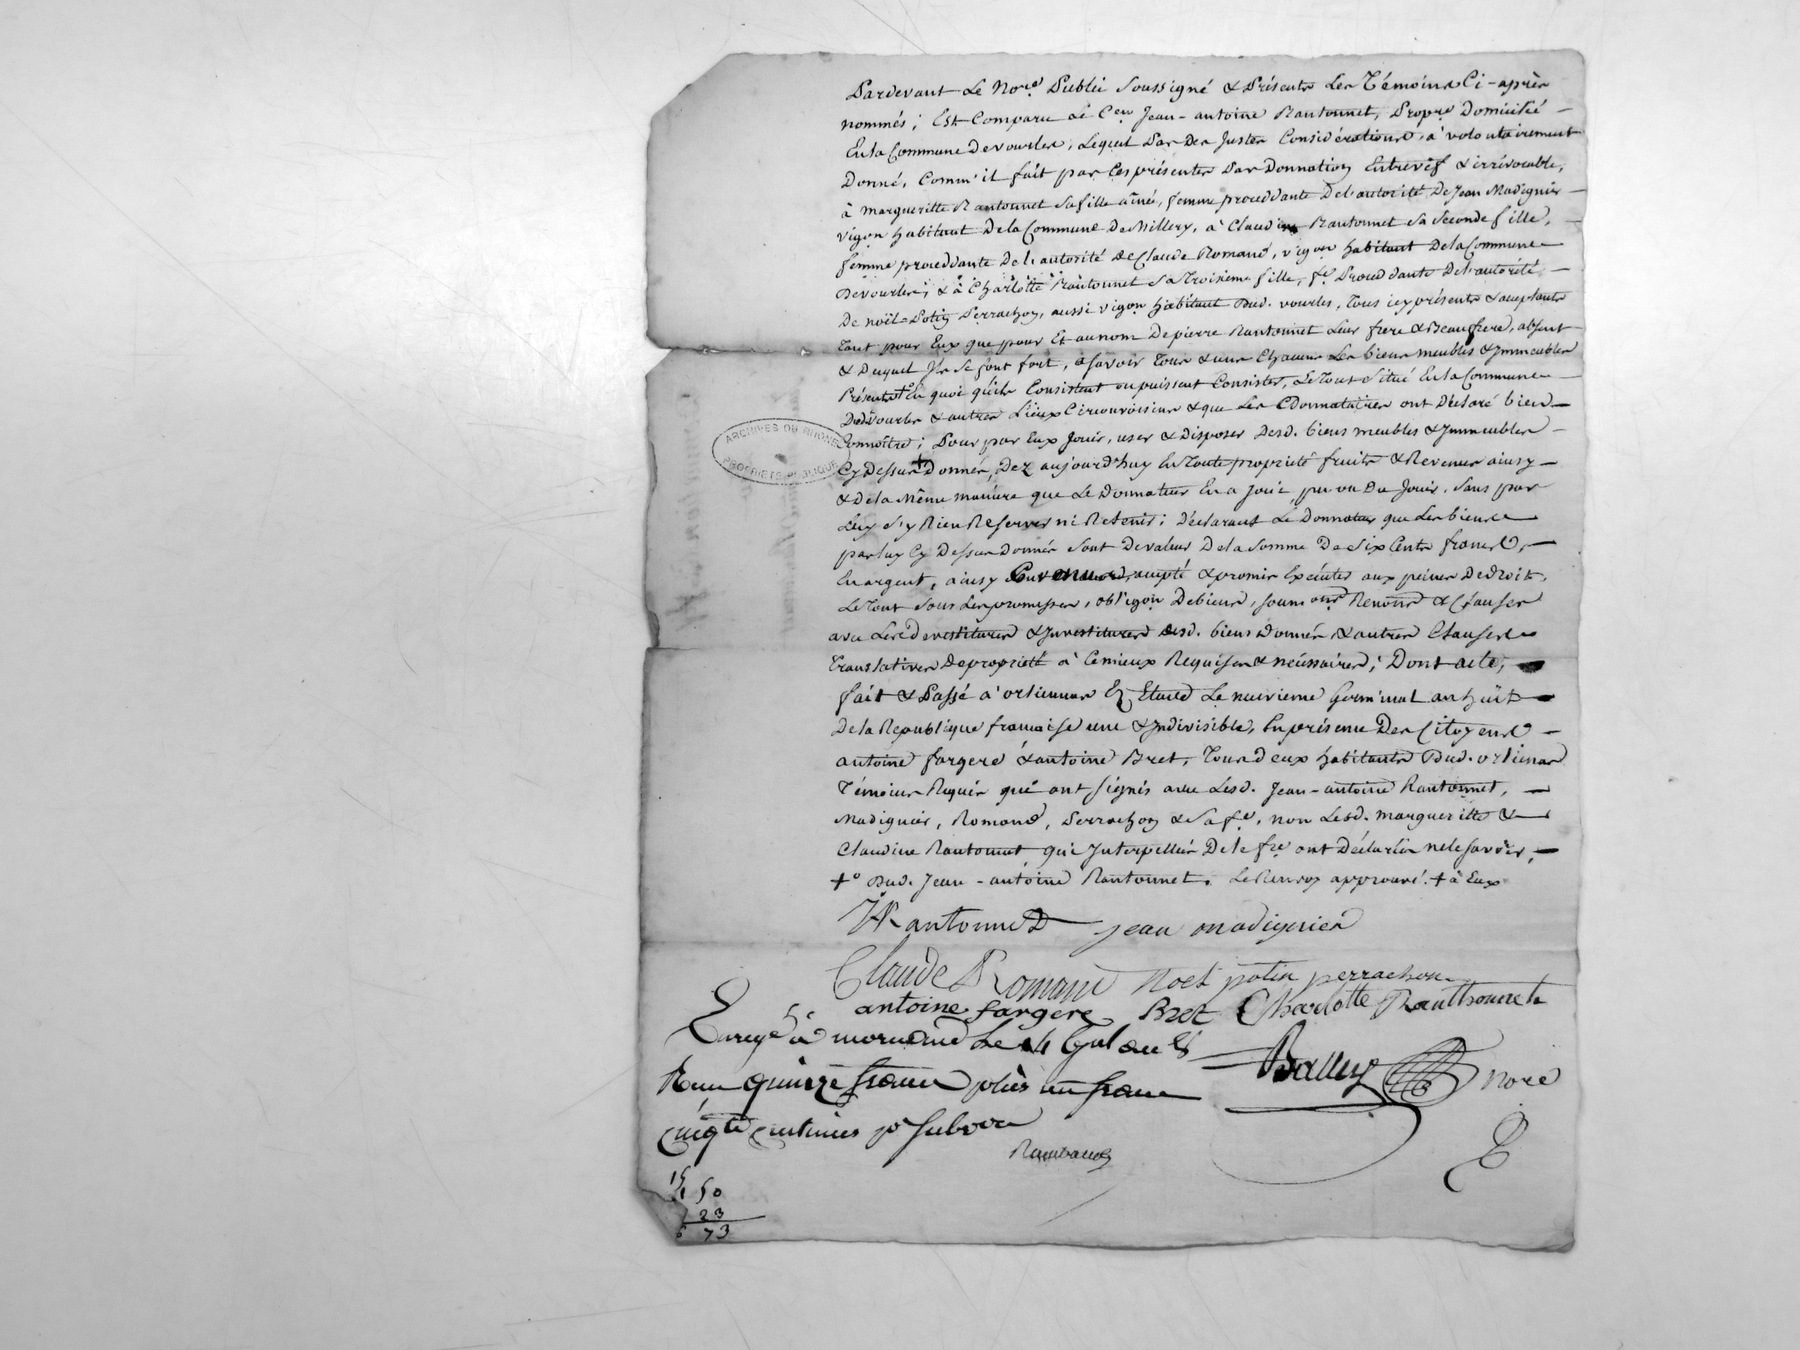 Pardevant Le No.re Public Soussigné & Présents Les Témoins Ci-après
nommés; Est Comparu Le C.en Jean-antoine Rantonnet, Propre Domicilié
En la Commune de vourles, Lequel Par Des Justes Considérations, a volontairement
Donné, Comm'il fait par Ces présentes Par Donnation Entrevif & irrévocable,
à margueritte Rantonnet Sa fille aînée, femme proceddante De l'autorité De Jean Madignier
vigon habitant De la Commune De Millery, à Claudine Rantonnet Sa Seconde fille,
femme proceddante De l'autorité de Claude Romand, vigon habitant De la Commune
De vourles; & à Charlotte Rantonnet Sa Troisieme fille, f.e Proceddante De l'autorité
De noël Potin Perrachon, aussi vigon habitant Dud. vourles, Tous icy présents & acceptants
Tant pour Eux que pour Et au nom De pierre Rantonnet Leur frere & Beaufrere, absent
& Duquel Ils Se font fort, a Savoir Tous & uns Chacuns Les biens meubles & Immeubles
Présents + En quoi qu'ils Consistent ou puissent Consister, Le Tout Situé En la Commune
Dud. Vourles & autres Lieux Circonvoisins & que Les Donnataires ont Déclaré bien
Connoître; Pour par Eux Jouir, user & Disposer Desd. biens meubles & Immeubles
Cy Dessus + Donnés, Dez aujourd'huy En Toute propriété fruits & Revenus ainsy
& de la Même maniere que Le Donnateur En a Joui, pu ou Du Jouir, Sans par
Luy S'y Rien Reserver ni Retenir; Déclarant Le Donnateur que Les biens
par luy Cy Dessus Donnés Sont De valeur De la Somme De Six Cents francs,
En argent, ainsy Convenu, accepté & promis Exécuter aux peines De droit,
Le Tout Sous Les promesses, obligon De biens, soum ons Renons & Clauses
avec Les devestitures & Investitures desd. biens Donnés, & autres Clauses
Translatives De propriété à Ce mieux Requises & nécessaires; Dont acte,
fait & Passé à orlienas En Etude Le neuvieme Germinal an huit
De la Republique francaise une & Indivisible, En présence Des Citoyens
antoine fargere & antoine Bret, Tous Deux habitants Dud. orlienas
Témoins Requis qui ont Signés avec Lesd. Jean-antoine Rantonnet,
Madignier, Romand, Perrachon & Sa f.e, non Lesd. margueritte &
Claudine Rantonnet qui Interpellées De le f.re ont Déclarées ne le Savoir,
+° Dud. Jean-antoine Rantonnet. Le Renvoy approuvé. + à Eux
JA Rantonnet Jean madignier
Claude Romand Noel potin perrachon
antoine fargere Bret Charlotte Ranthonnet
Enregé à mornand Le 14 Gal an 8
Reçu quinze francs plus un franc
cinq.te centimes p.r Subvon
Balluy no.re
Rambaud
15
1 50
23
6 73
ARCHIVES DU RHONE
PROPRIETE PUBLIQUE